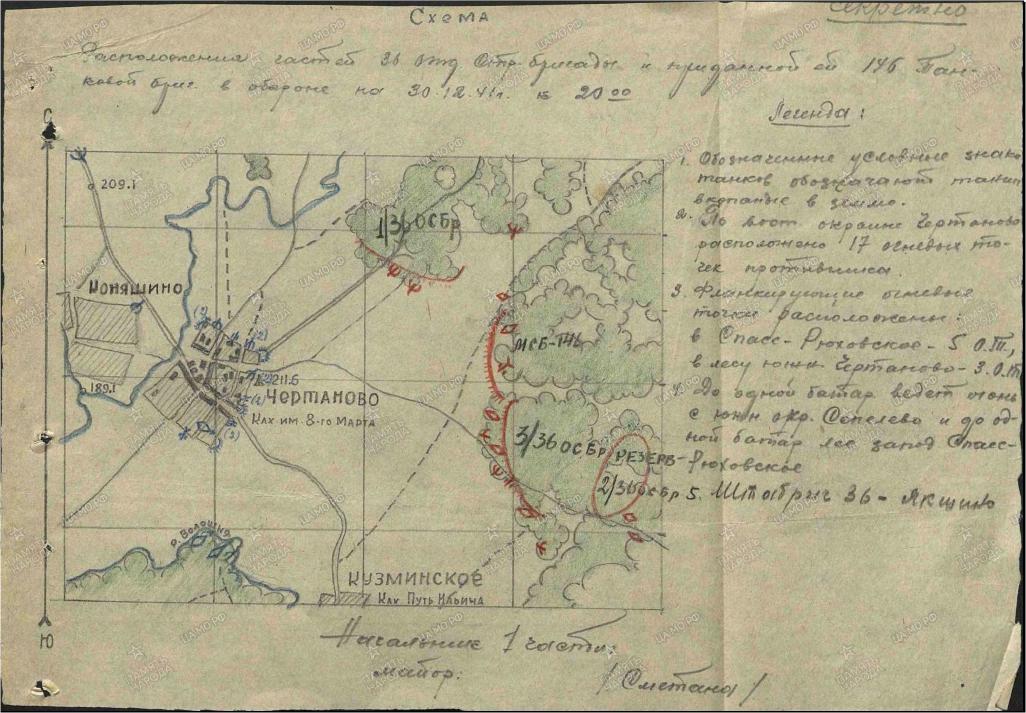 Секретно
Схема
Расположения частей 36 отд Стр-бригады и приданной ей 146 Тан-
ковой бриг. в обороне на 30.12.41г. к 20 00
Легенда:
1. Обозначенные условные знаки
танков обозначают танки
вкопаные в землю.
2. По вост. окраине Чертаново
расположено 17 огневых то-
чек противника.
3. Фланкирующие огневые
точки расположены:
в Спасс-Рюховское - 5 О.Т.,
в лесу южн. Чертаново - 3. О.Т
До одной батар ведет огонь
с южн окр. Сепелево и до од-
ной батар лес запад Спасс-
Рюховское
5. Штабриг 36 - Якшино
С
209.1
1/36 ОСБр
Коняшино
МСБ-146
189.1
211.6
Чертаново
Клх им. 8-го Марта
3/36 ОСБр
Резерв
2/36 ОСБр
р. Волошня
Кузминское
Клх Путь Ильича
Ю
Начальник 1 части:
майор:
/Сметана/